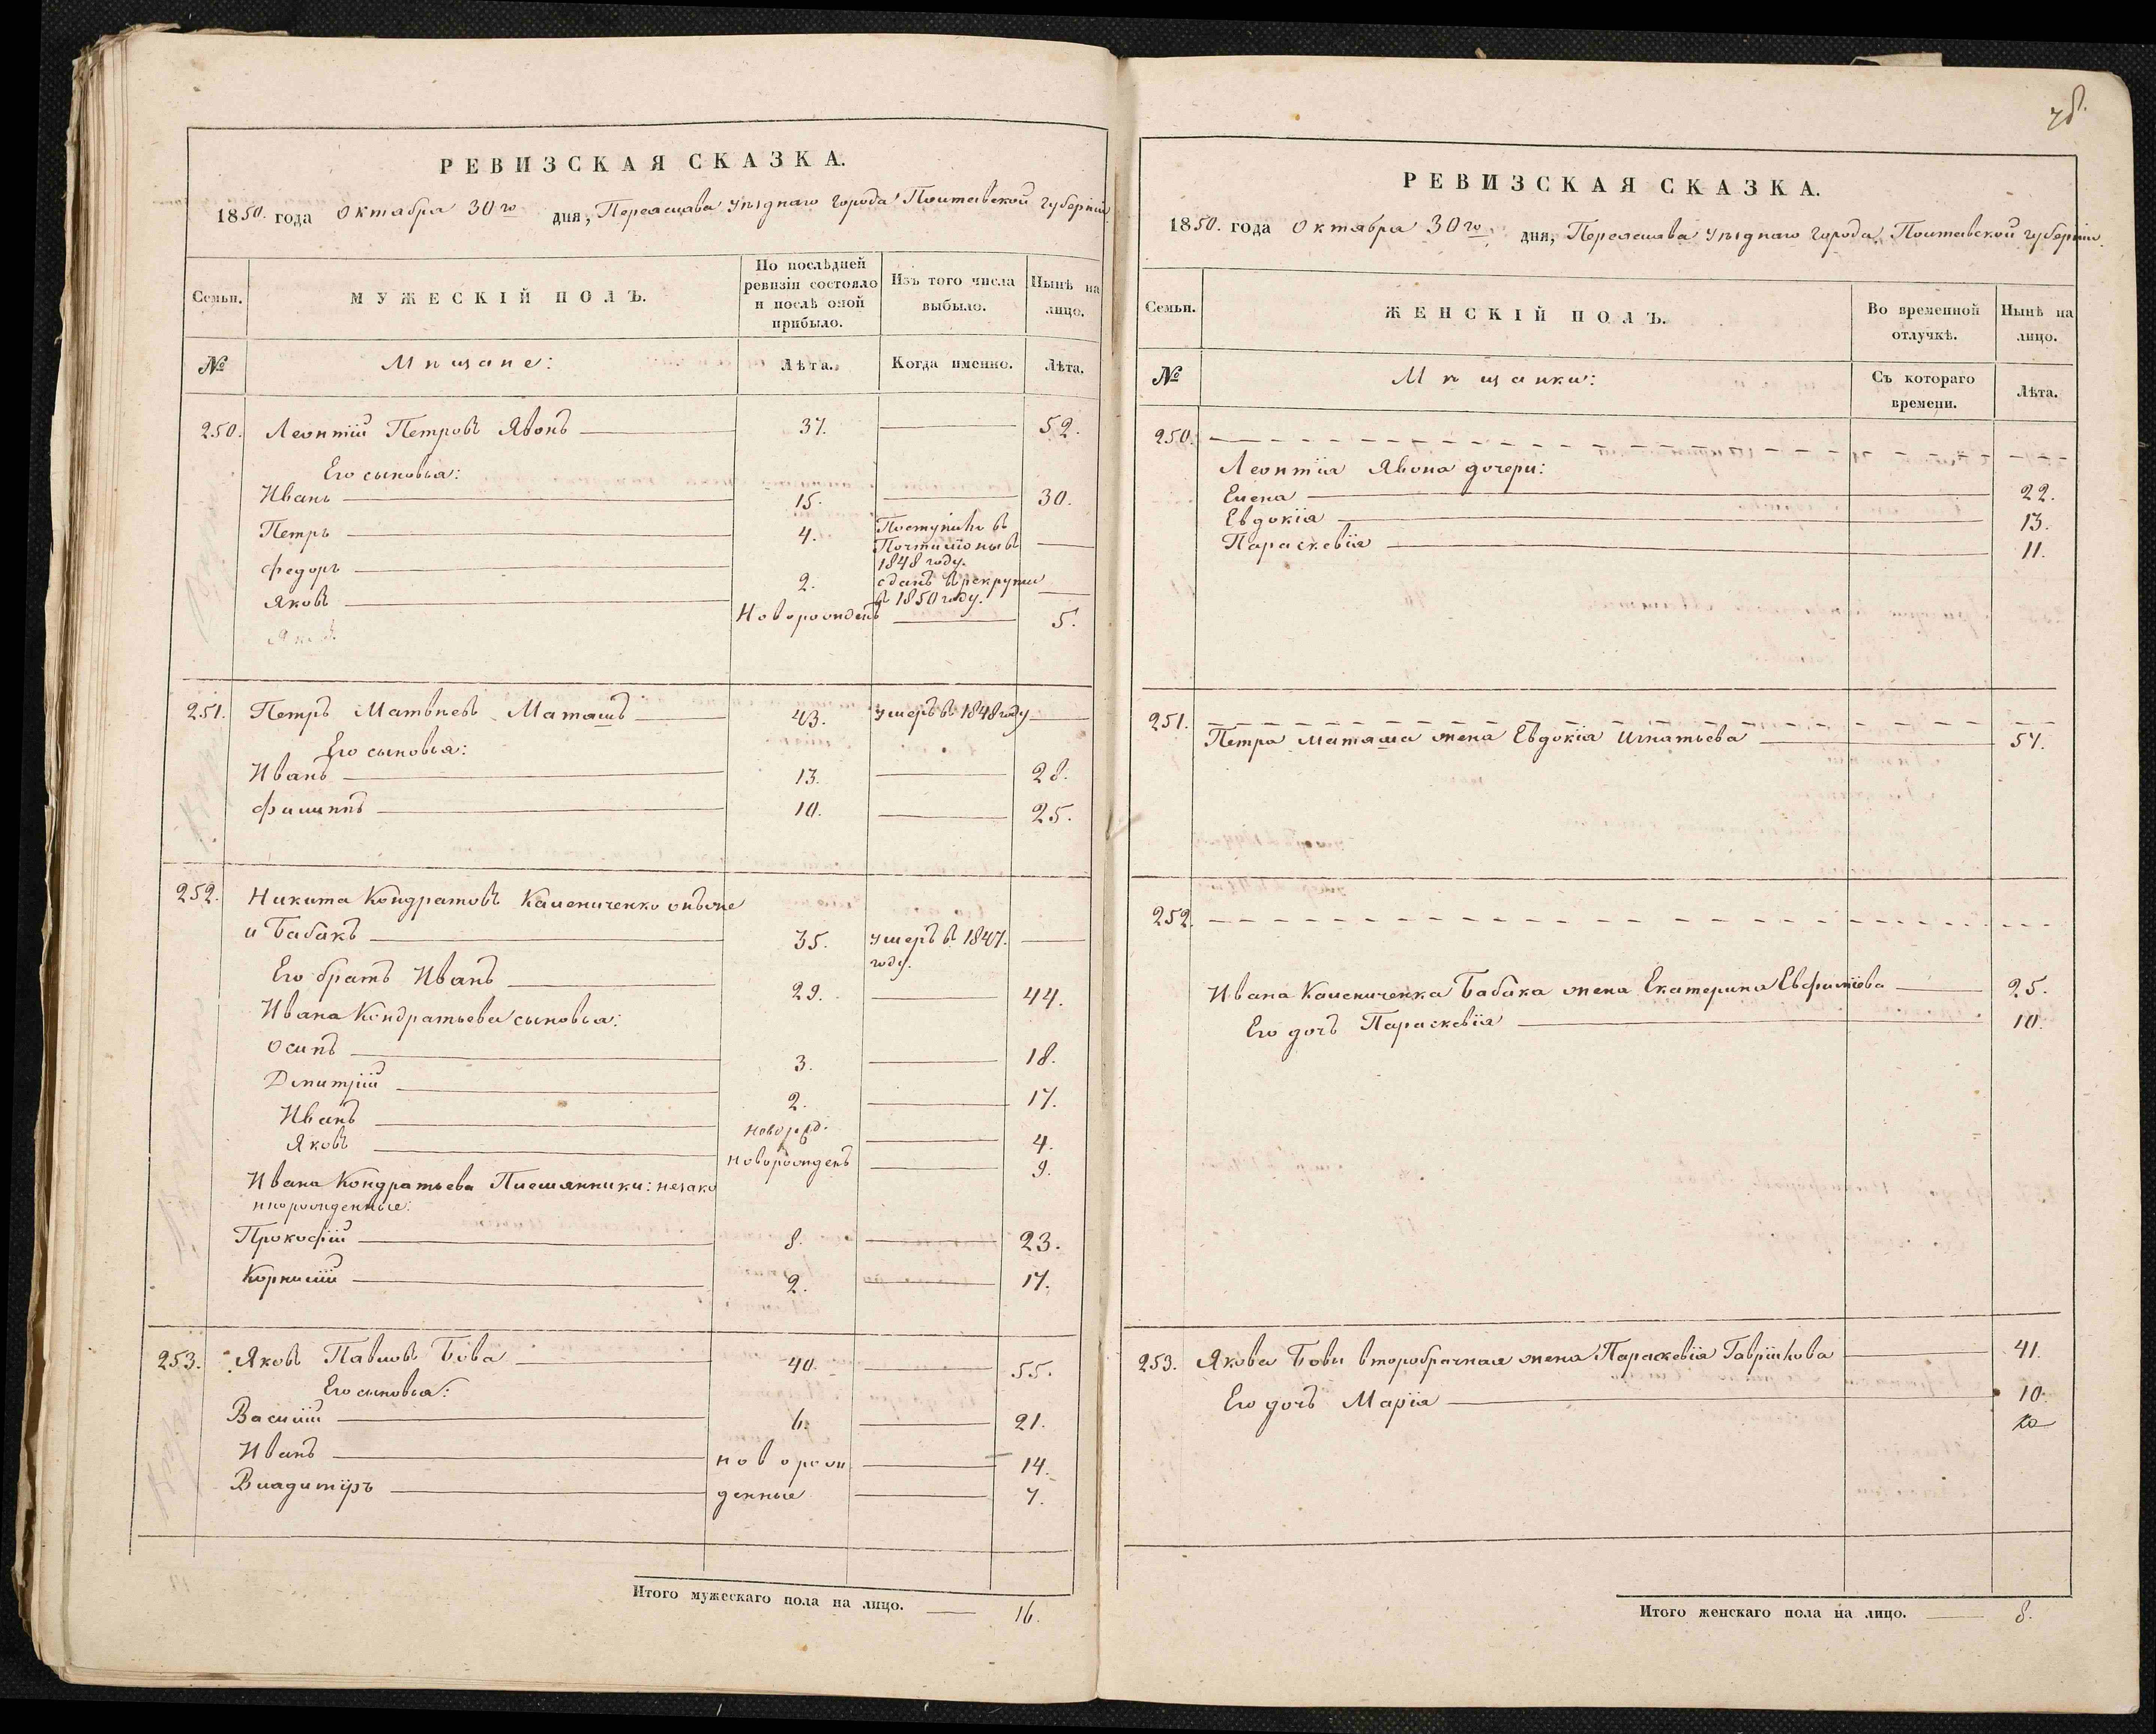 РЕВИЗСКАЯ СКАЗКА.
1850. года Октября 30го дня, Переяслава уѣзднаго города Полтавской губерніи
Семьи.
МУЖЕСКІЙ ПОЛЪ.
По послѣдней ревизіи состояло и послѣ оной прибыло.
Изъ того числа выбыло.
Нынѣ на лицо.
№
Мѣщане:
Лѣта.
Когда именно.
Лѣта.
250. Леонтій Петровъ Явонъ 37. 52.
Его сыновья:
Иванъ 15. 30.
Петръ 4. Поступилъ въ Почталіоны въ 1848 году.
Федоръ 2. сданъ въ рекруты въ 1850 году.
Яковъ Новорожденъ 5.
251. Петръ Матвѣевъ Маташъ 43. умеръ въ 1848 году
Его сыновья:
Иванъ 13. 28.
Филиппъ 10. 25.
252. Никита Кондратовъ Калениченко онъже
и Бабакъ 35. умеръ въ 1847. году.
Его братъ Иванъ 29. 44.
Ивана Кондратьева сыновья:
Осипъ 3. 18.
Дмитрій 2. 17.
Иванъ новорожд. 4.
Яковъ новорожденъ 9.
Ивана Кондратьева Племянники: незако
ннорожденные:
Прокофій 8. 23.
Корнилій 2. 17.
253. Яковъ Павловъ Бова 40. 55.
Его сыновья:
Василій 6. 21.
Иванъ новорож 14.
Владиміръ денные 7.
Итого мужескаго пола на лицо. 16.
РЕВИЗСКАЯ СКАЗКА.
1850. года Октября 30го дня, Переяслава уѣзднаго города, Полтавской губерніи.
Семьи.
ЖЕНСКІЙ ПОЛЪ.
Во временной отлучкѣ.
Нынѣ на лицо.
№
Мѣщанки:
Съ котораго времени.
Лѣта.
250.
Леонтія Явона дочери:
Елена 22.
Евдокія 13.
Параскевія 11.
251.
Петра Маташа жена Евдокія Игнатьева 57.
252.
Ивана Калениченка Бабака жена Екатерина Евфиміева 25.
Его дочь Параскевія 10.
253. Якова Бовы второбрачная жена Параскевія Гавріилова 41.
Его дочь Марія 10.
Итого женскаго пола на лицо. 8.